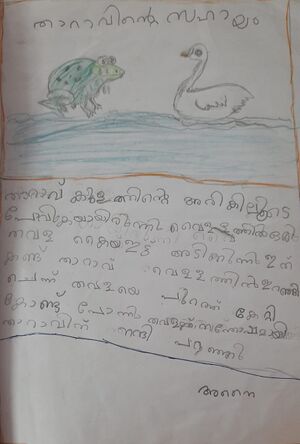 താറാവിന്റെ സഹായം
താറാവ് കുളത്തിന്റെ അരികിലൂടെ
പോവുകയായിരുന്നു വെള്ളത്തിൽ ഒരു
തവള കൈയ്ഇട്ട് അടിക്കുന്നു ഇത്
കണ്ട് താറാവ് വെള്ളത്തിൽ ഇറങ്ങി
ചെന്ന് തവളയെ പുറത്ത് കേറ്റി
കോണ്ട് പോന്നു തവളക്ക് സന്തോഷമായി
താറാവിന് നന്ദി പറഞ്ഞു